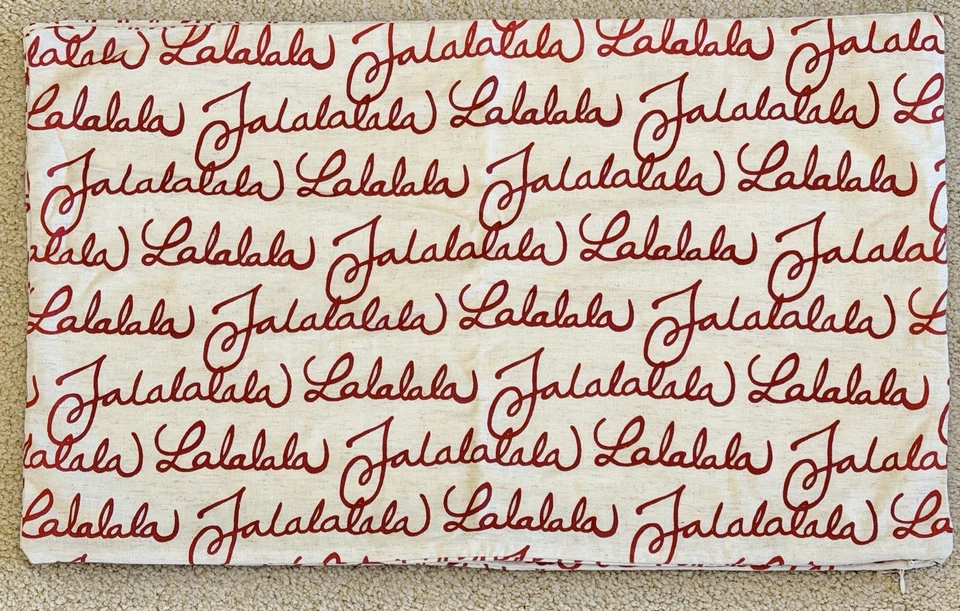 lalalala Lalalala Falalalala Lalalala Falala
Lalalala Falalalala Lalalala Falalalala La
Falalalala Lalalala Falalalala Lalalala
alala Lalalala Falalalala Lalalala Falalal
Lalalala Falalalala Lalalala Falalalala L
Falalalala Lalalala Falalalala Lalalala
lalala Lalalala Falalalala Lalalala Falala
Lalalala Falalalala Lalalala Falalalala La